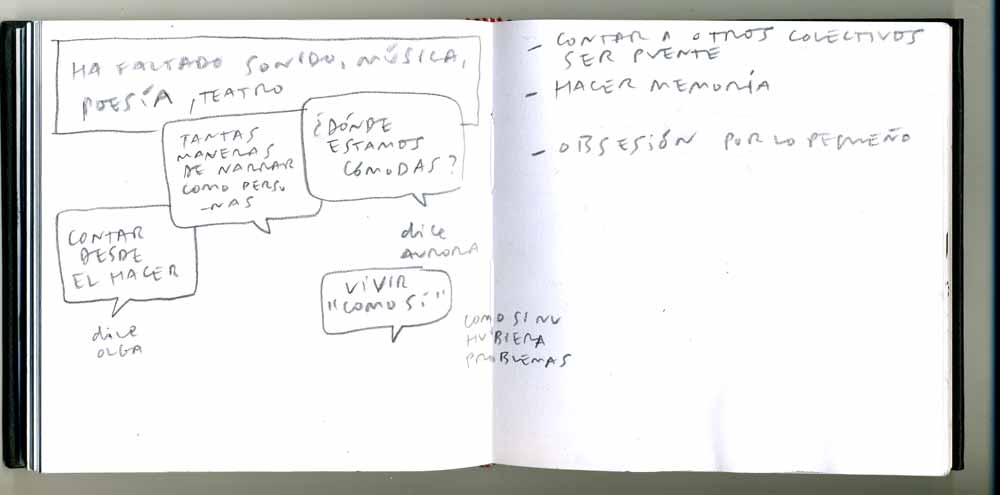 HA FALTADO SONIDO, MÚSICA,
POESÍA, TEATRO
TANTAS
MANERAS
DE NARRAR
COMO PERSO
-NAS
¿DÓNDE
ESTAMOS
CÓMODAS?
dice
AURORA
CONTAR
DESDE
EL HACER
dice
OLGA
VIVIR
"COMO SI"
COMO SI NO
HUBIERA
PROBLEMAS
- CONTAR A OTROS COLECTIVOS
SER PUENTE
- HACER MEMORIA
- OBSESIÓN POR LO PEQUEÑO